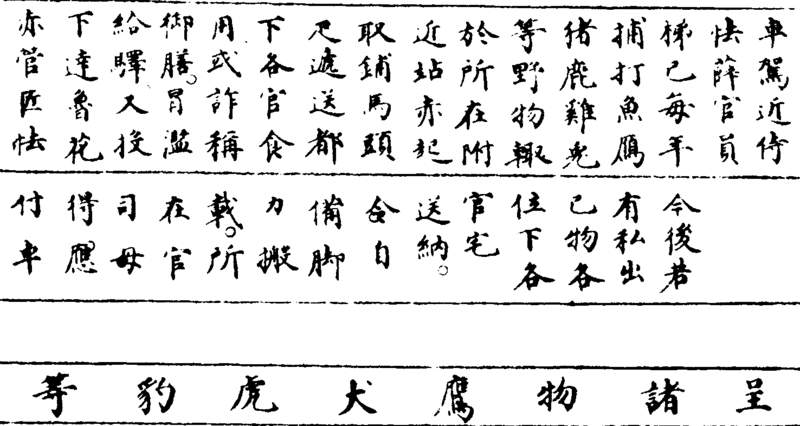 車駕近侍
怯薛官員
梯己每年
捕打魚鴈
猪鹿雞兎
等野物輙
於所在附
近站亦起
取鋪馬頭
疋遞送都
下各官食
用或詐稱
御膳。冒濫
給驛又投
下達魯花
亦管匠怯
今後若
有私出
己物各
位下各
官宅
送納。
合自
備脚
力搬
載。所
在官
司毋
得應
付車
呈諸物鷹犬虎豹等